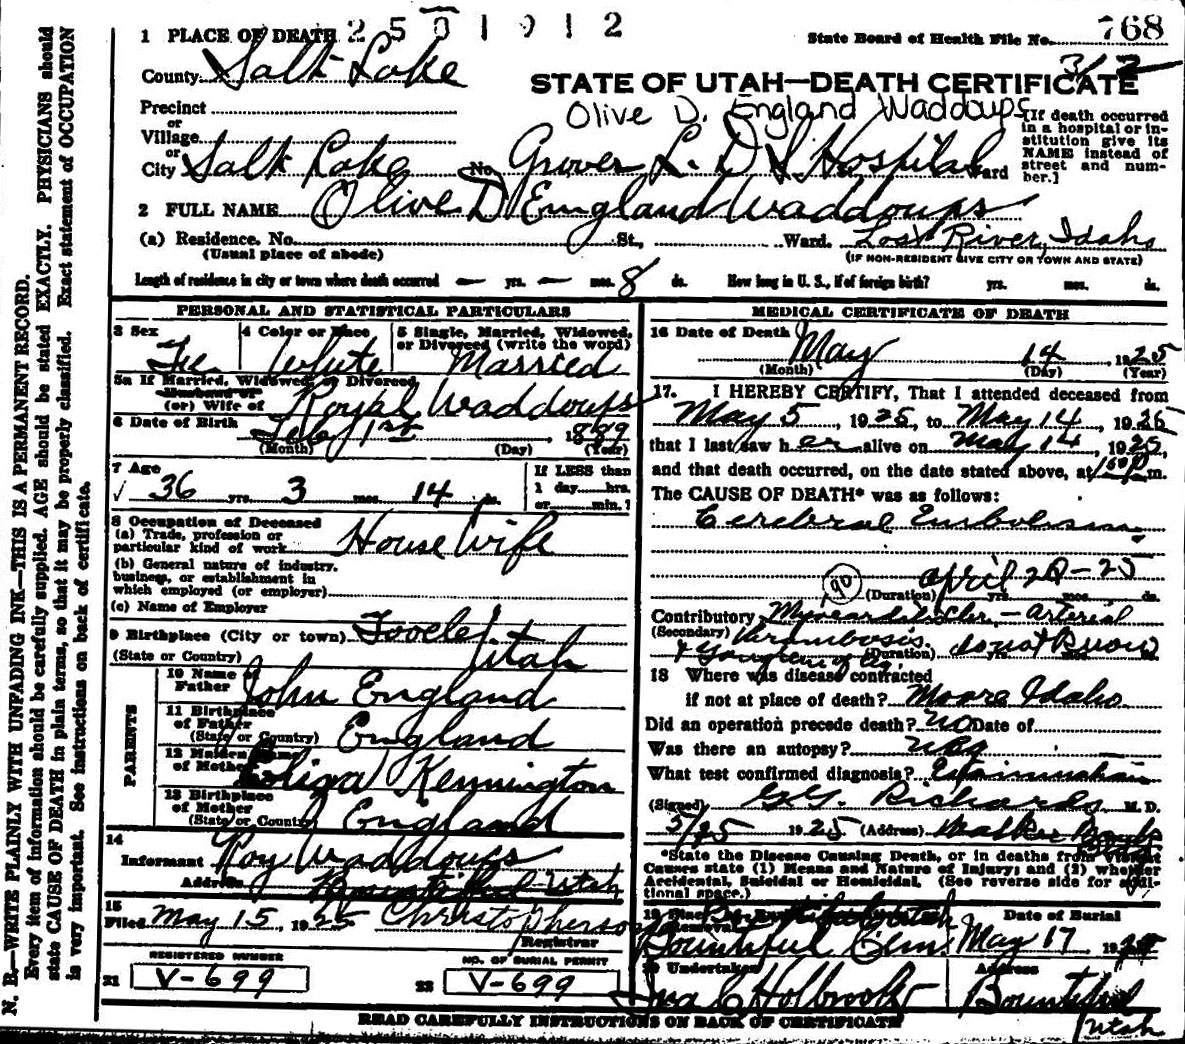 2501912
768
1 PLACE OF DEATH
State Board of Health File No.
County Salt Lake
STATE OF UTAH—DEATH CERTIFICATE
Precinct
Olive D. England Waddoups
or
Village
or
City Salt Lake No. Groves L. D S Hospital Ward
[If death occurred in a hospital or institution give its NAME instead of street and number.]
2 FULL NAME Olive D England Waddoups
(a) Residence. No. St., Ward. Lost River, Idaho
(Usual place of abode)
(IF NON-RESIDENT GIVE CITY OR TOWN AND STATE)
Length of residence in city or town where death occurred — yrs. — mos. 8 ds. How long in U. S., if of foreign birth? yrs. mos. ds.
PERSONAL AND STATISTICAL PARTICULARS
3 Sex Fe
4 Color or Race White
5 Single, Married, Widowed, or Divorced (write the word) Married
5a If Married, Widowed, or Divorced
Husband of
(or) Wife of Royal Waddoups
6 Date of Birth Feb 1st, 1889
(Month) (Day) (Year)
7 Age 36 yrs. 3 mos. 14 ds.
If LESS than
1 day......hrs.
or......min.?
8 Occupation of Deceased
(a) Trade, profession or particular kind of work House Wife
(b) General nature of industry, business, or establishment in which employed (or employer)
(c) Name of Employer
9 Birthplace (City or town) Tooele, Utah
(State or Country)
PARENTS
10 Name of Father John England
11 Birthplace of Father (State or Country) England
12 Maiden Name of Mother Kennington
13 Birthplace of Mother (State or Country) England
14
Informant Roy Waddoups
Address Utah
15
Filed May 15, 1925 Christopherson
Registrar
REGISTERED NUMBER
21 V-699
NO. OF BURIAL PERMIT
22 V-699
MEDICAL CERTIFICATE OF DEATH
16 Date of Death May 14, 1925
(Month) (Day) (Year)
17. I HEREBY CERTIFY, That I attended deceased from
May 5, 1925, to May 14, 1925
that I last saw her alive on May 14, 1925,
and that death occurred, on the date stated above, at m.
The CAUSE OF DEATH* was as follows:
Cerebral Embolism
90
April 28-25
(Duration) yrs. mos. ds.
Contributory Myocarditis Chr. — Arterial
(Secondary) thrombosis
(Duration) do not know
18 Where was disease contracted
if not at place of death? Moore Idaho.
Did an operation precede death? No Date of
Was there an autopsy?
What test confirmed diagnosis? Examination
(Signed) G.G. Richards M. D.
5/15 1925 (Address)
*State the Disease Causing Death, or in deaths from Violent Causes state (1) Means and Nature of Injury; and (2) whether Accidental, Suicidal or Homicidal. (See reverse side for additional space.)
Date of Burial
Bountiful Cem. May 17 1925
20 Undertaker
Address
Holbrook Bountiful
Utah
READ CAREFULLY INSTRUCTIONS ON BACK OF CERTIFICATE
N. B.—WRITE PLAINLY WITH UNFADING INK—THIS IS A PERMANENT RECORD.
Every item of information should be carefully supplied. AGE should be stated EXACTLY. PHYSICIANS should
state CAUSE OF DEATH in plain terms, so that it may be properly classified. Exact statement of OCCUPATION
is very important. See instructions on back of certificate.